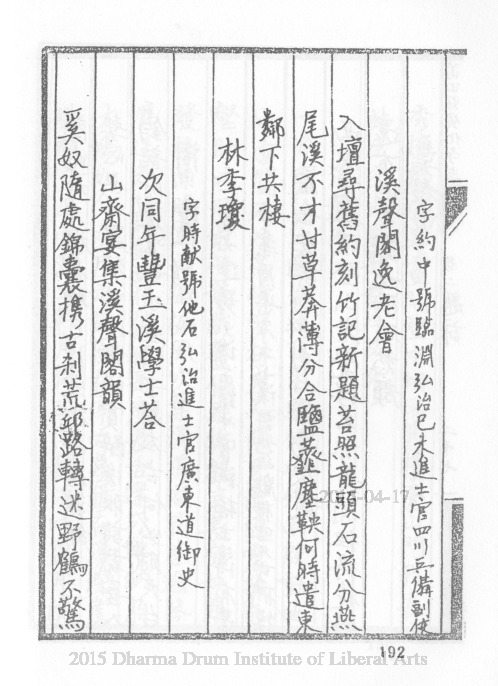 字約中號臨淵弘治己未進士官四川兵備副使
溪聲閣逸老會
入壇尋舊約刻竹記新題苔照龍頭石流分燕
尾溪不才甘草莽薄分合鹽虀塵鞅何時遣東
鄰下共棲
林季瓊
字時献號他石弘治進士官廣東道御史
次同年豐玉溪學士荅
山齋宴集溪聲閣韻
奚奴隨處錦囊携古刹荒邱路轉迷野鶴不驚
2015-04-17
192
2015 Dharma Drum Institute of Liberal Arts